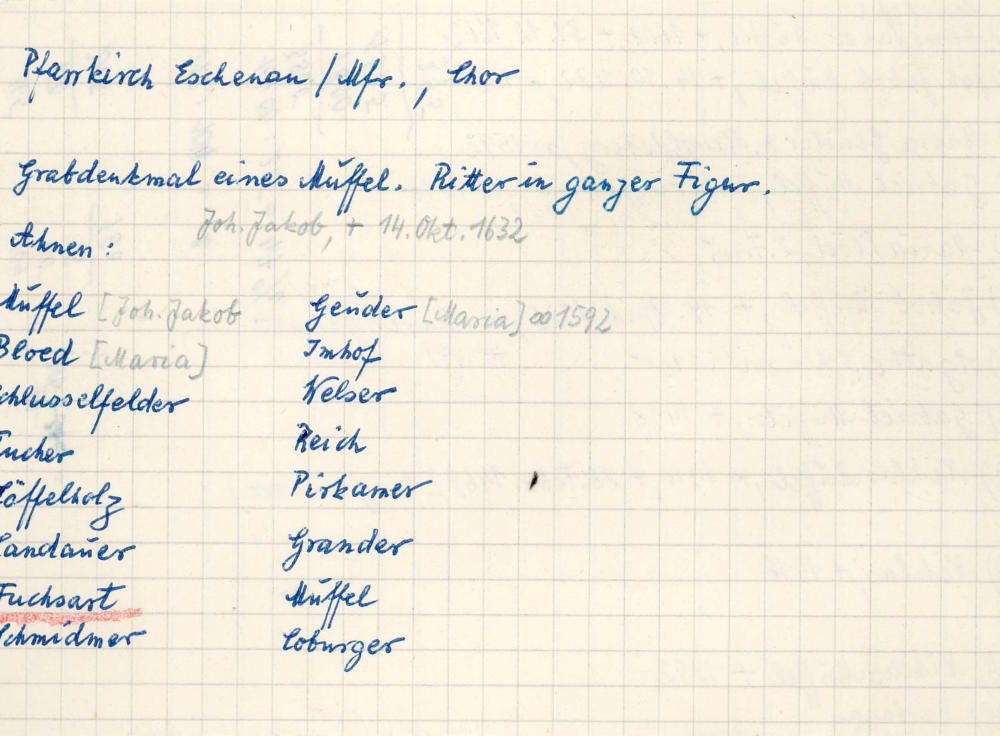 Pfarrkirch Eschenau / Mfr., Chor
Grabdenkmal eines Müffel. Ritter in ganzer Figur.
Joh. Jakob, + 14. Okt. 1632
Ahnen :
Müffel [Joh. Jakob Geüder [Maria] ∞ 1592
Bloed [Maria] Imhof
chlusselfelder Welser
Tucher Reich
Löffelholz Pirkamer
Landaüer Grander
Fuchsart Müffel
Schmidmer Coburger